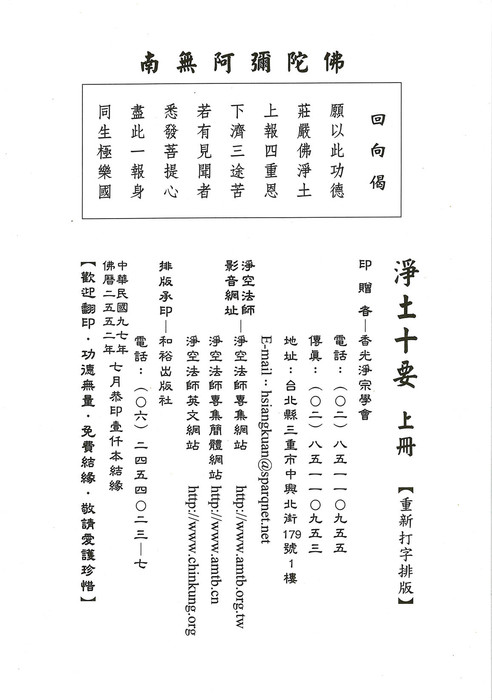 南無阿彌陀佛
回向偈
願以此功德
莊嚴佛淨土
上報四重恩
下濟三途苦
若有見聞者
悉發菩提心
盡此一報身
同生極樂國
淨土十要 上冊 【重新打字排版】
印贈者─香光淨宗學會
電話：（０２）８５１１０９５５
傳真：（０２）８５１１０９５３
地址：台北縣三重市中興北街179號1樓
E-mail：hsiangkuan@sparqnet.net
淨空法師影音網址─淨空法師專集網站 http://www.amtb.org.tw
淨空法師專集簡體網站 http://www.amtb.cn
淨空法師英文網站 http://www.chinkung.org
排版承印─和裕出版社
電話：（○六）二四五四○二三─七
中華民國九七年
佛曆二五五二年 七月恭印壹仟本結緣
【歡迎翻印．功德無量．免費結緣．敬請愛護珍惜】